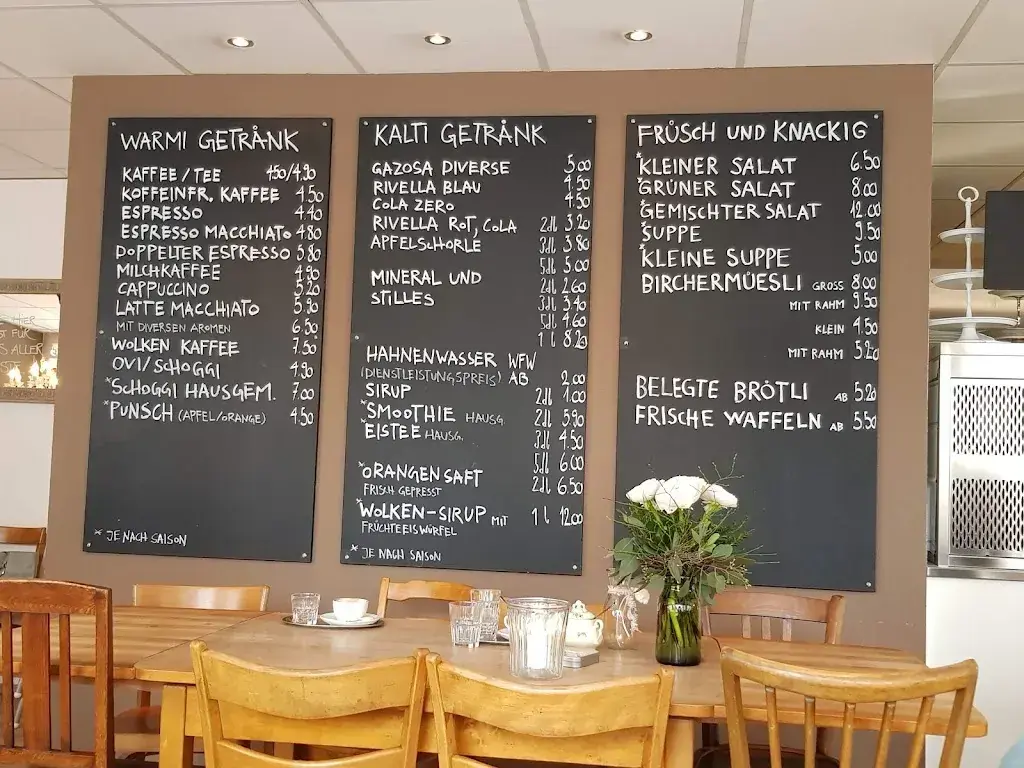 WARMI GETRÄNK
KAFFEE / TEE 4.50/4.90
KOFFEINFR. KAFFEE 4.50
ESPRESSO 4.40
ESPRESSO MACCHIATO 4.80
DOPPELTER ESPRESSO 5.80
MILCHKAFFEE 4.90
CAPPUCCINO 5.20
LATTE MACCHIATO 5.90
MIT DIVERSEN AROMEN 6.50
WOLKEN KAFFEE 7.50
OVI/SCHOGGI 4.90
*SCHOGGI HAUSGEM. 7.00
*PUNSCH (APFEL/ORANGE) 4.50
* JE NACH SAISON
KALTI GETRÄNK
GAZOSA DIVERSE 5.00
RIVELLA BLAU 4.50
COLA ZERO 4.50
RIVELLA ROT, COLA 2dl 3.20
APFELSCHORLE 3dl 3.80
5dl 5.00
MINERAL UND 2dl 2.60
STILLES 3dl 3.40
5dl 4.60
1 l 8.20
HAHNENWASSER WFW
(DIENSTLEISTUNGSPREIS) AB 2.00
SIRUP 2dl 1.00
*SMOOTHIE HAUSG. 2dl 5.90
*EISTEE HAUSG. 3dl 4.50
5dl 6.00
*ORANGENSAFT 2dl 6.50
FRISCH GEPRESST
*WOLKEN-SIRUP MIT 1 l 12.00
FRÜCHTEEISWÜRFEL
* JE NACH SAISON
FRÜSCH UND KNACKIG
*KLEINER SALAT 6.50
*GRÜNER SALAT 8.00
*GEMISCHTER SALAT 12.00
*SUPPE 9.50
*KLEINE SUPPE 5.00
BIRCHERMÜESLI GROSS 8.00
MIT RAHM 9.50
KLEIN 4.50
MIT RAHM 5.20
BELEGTE BRÖTLI AB 5.20
FRISCHE WAFFELN AB 5.50
HIER
FÜR
ALLER